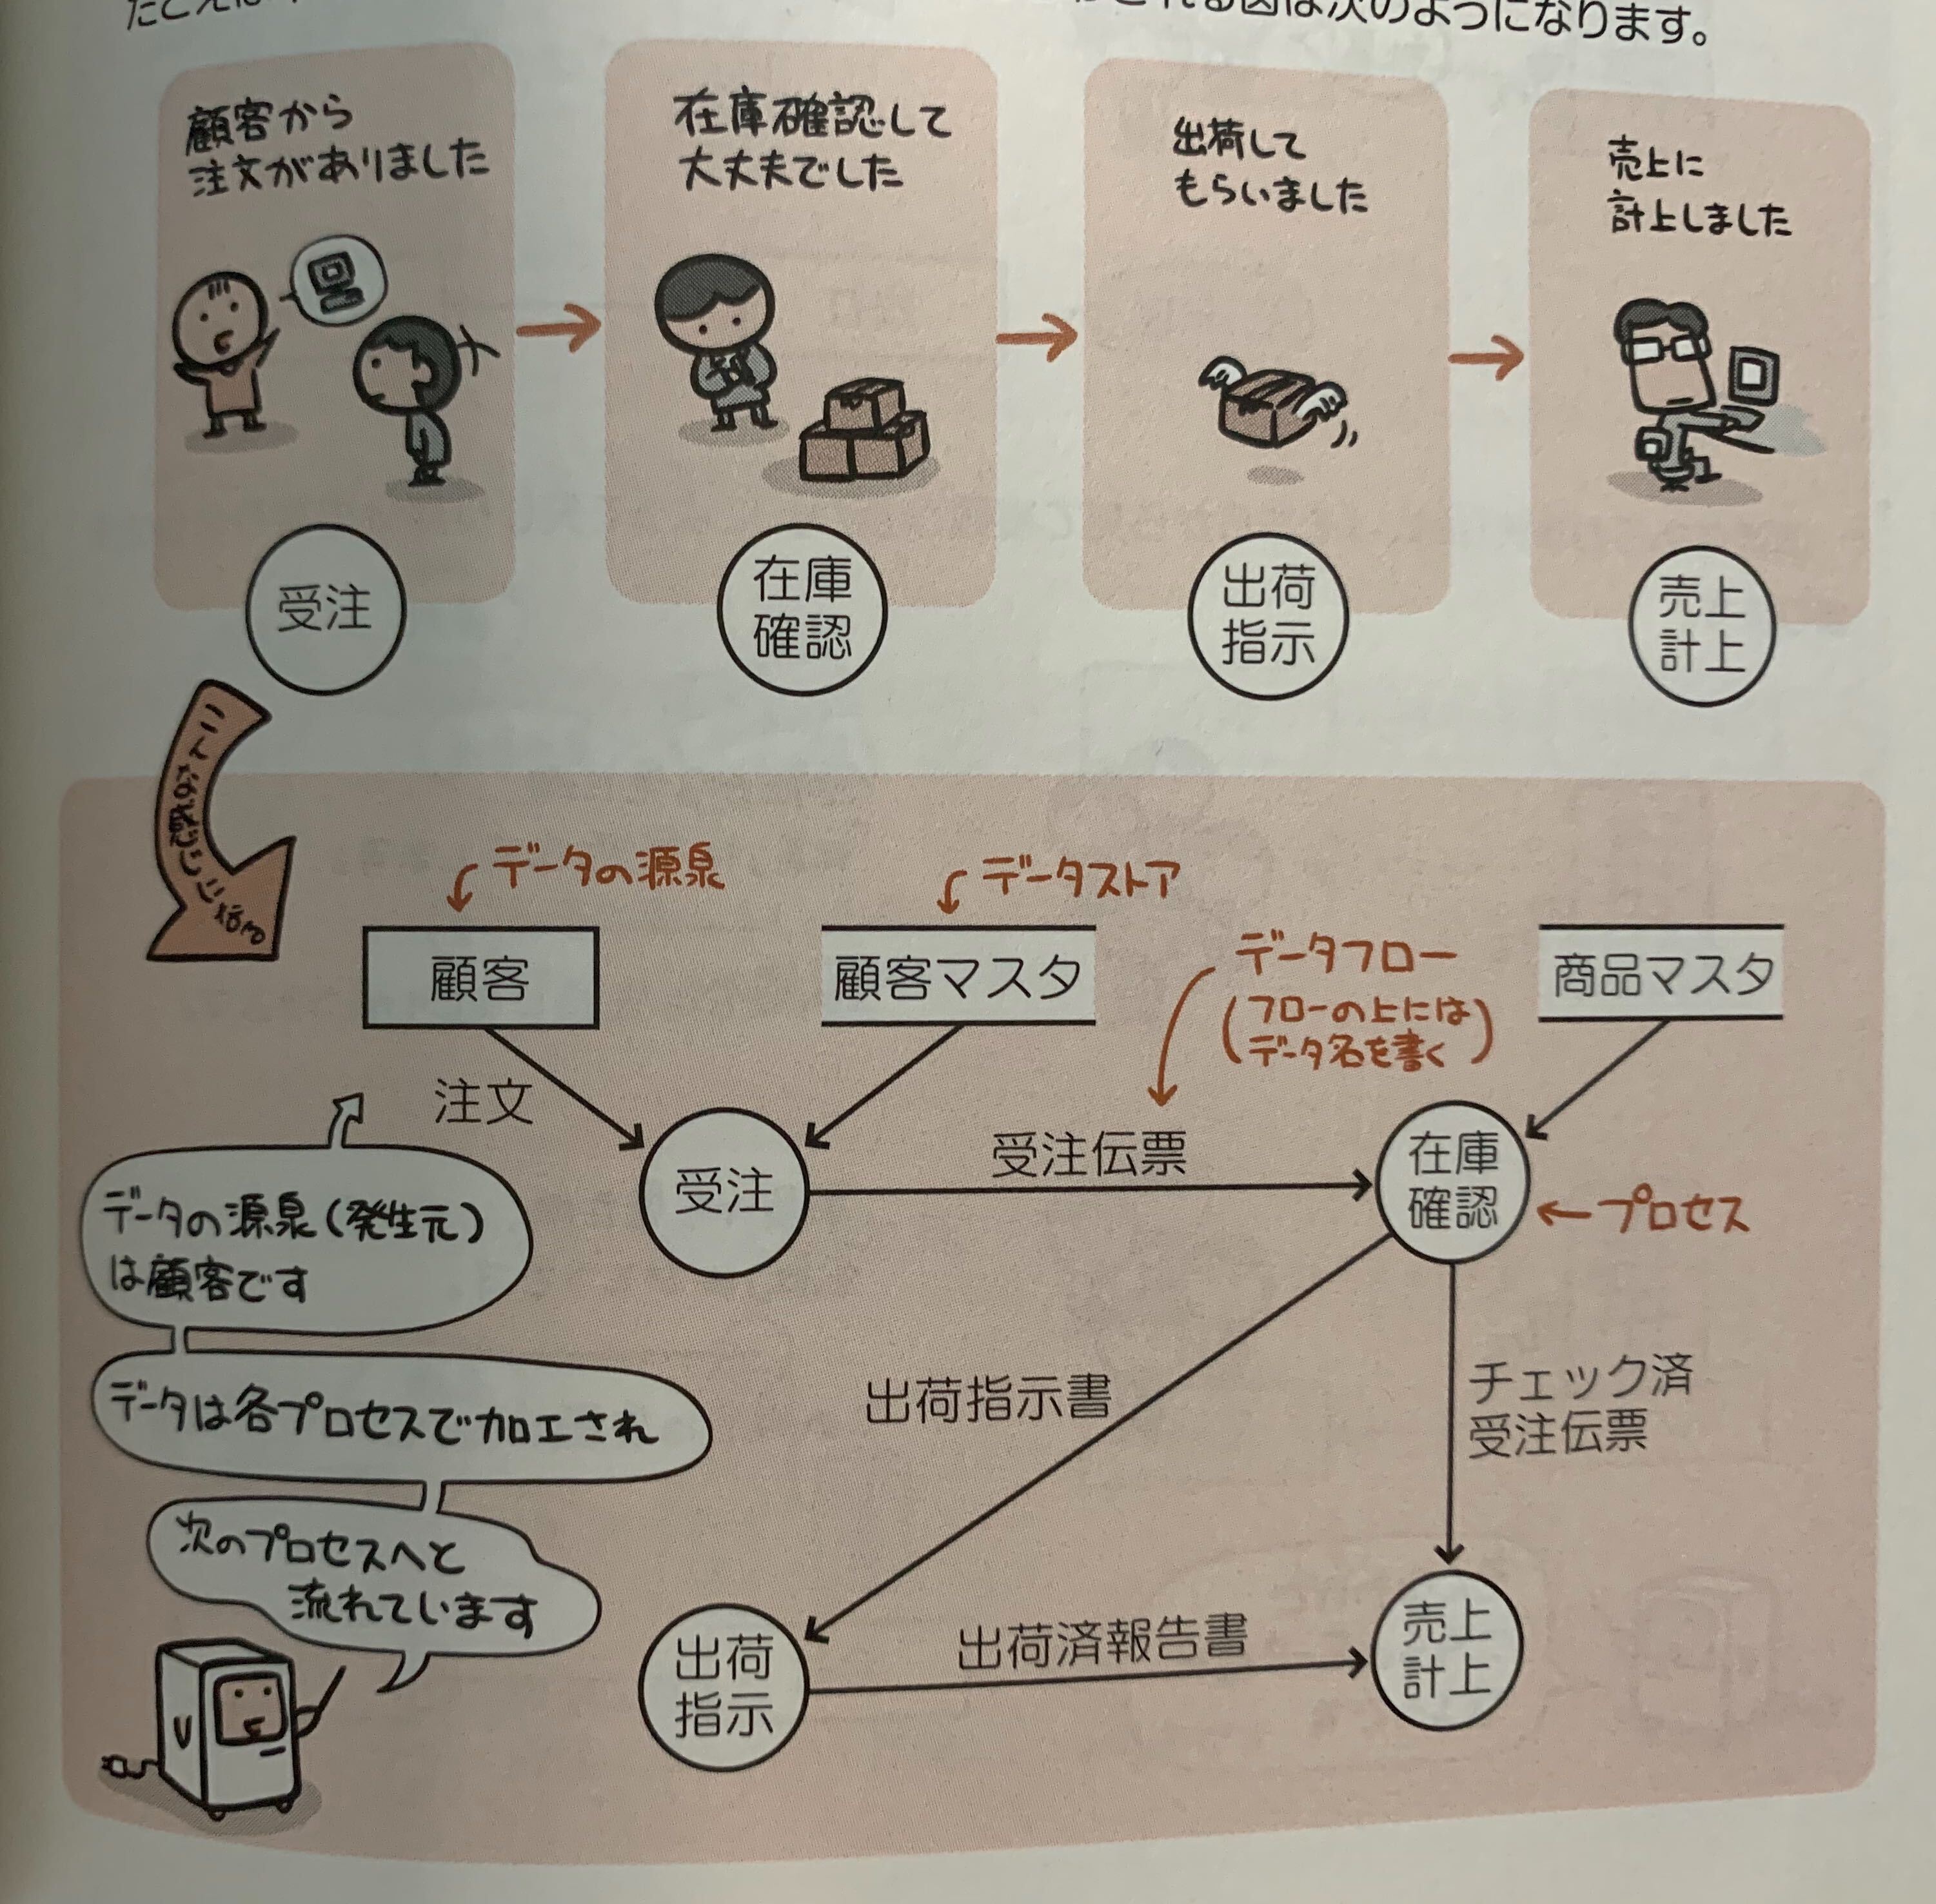 される図は次のようになります。
顧客から
注文がありました
在庫確認して
大丈夫でした
出荷して
もらいました
売上に
計上しました
受注
在庫
確認
出荷
指示
売上
計上
こんな感じになる
データの源泉
データストア
顧客
顧客マスタ
データフロー
(フローの上には
データ名を書く)
商品マスタ
注文
受注
受注伝票
在庫
確認
プロセス
データの源泉(発生元)
は顧客です
データは各プロセスで加工され
次のプロセスへと
流れています
出荷指示書
チェック済
受注伝票
出荷
指示
出荷済報告書
売上
計上